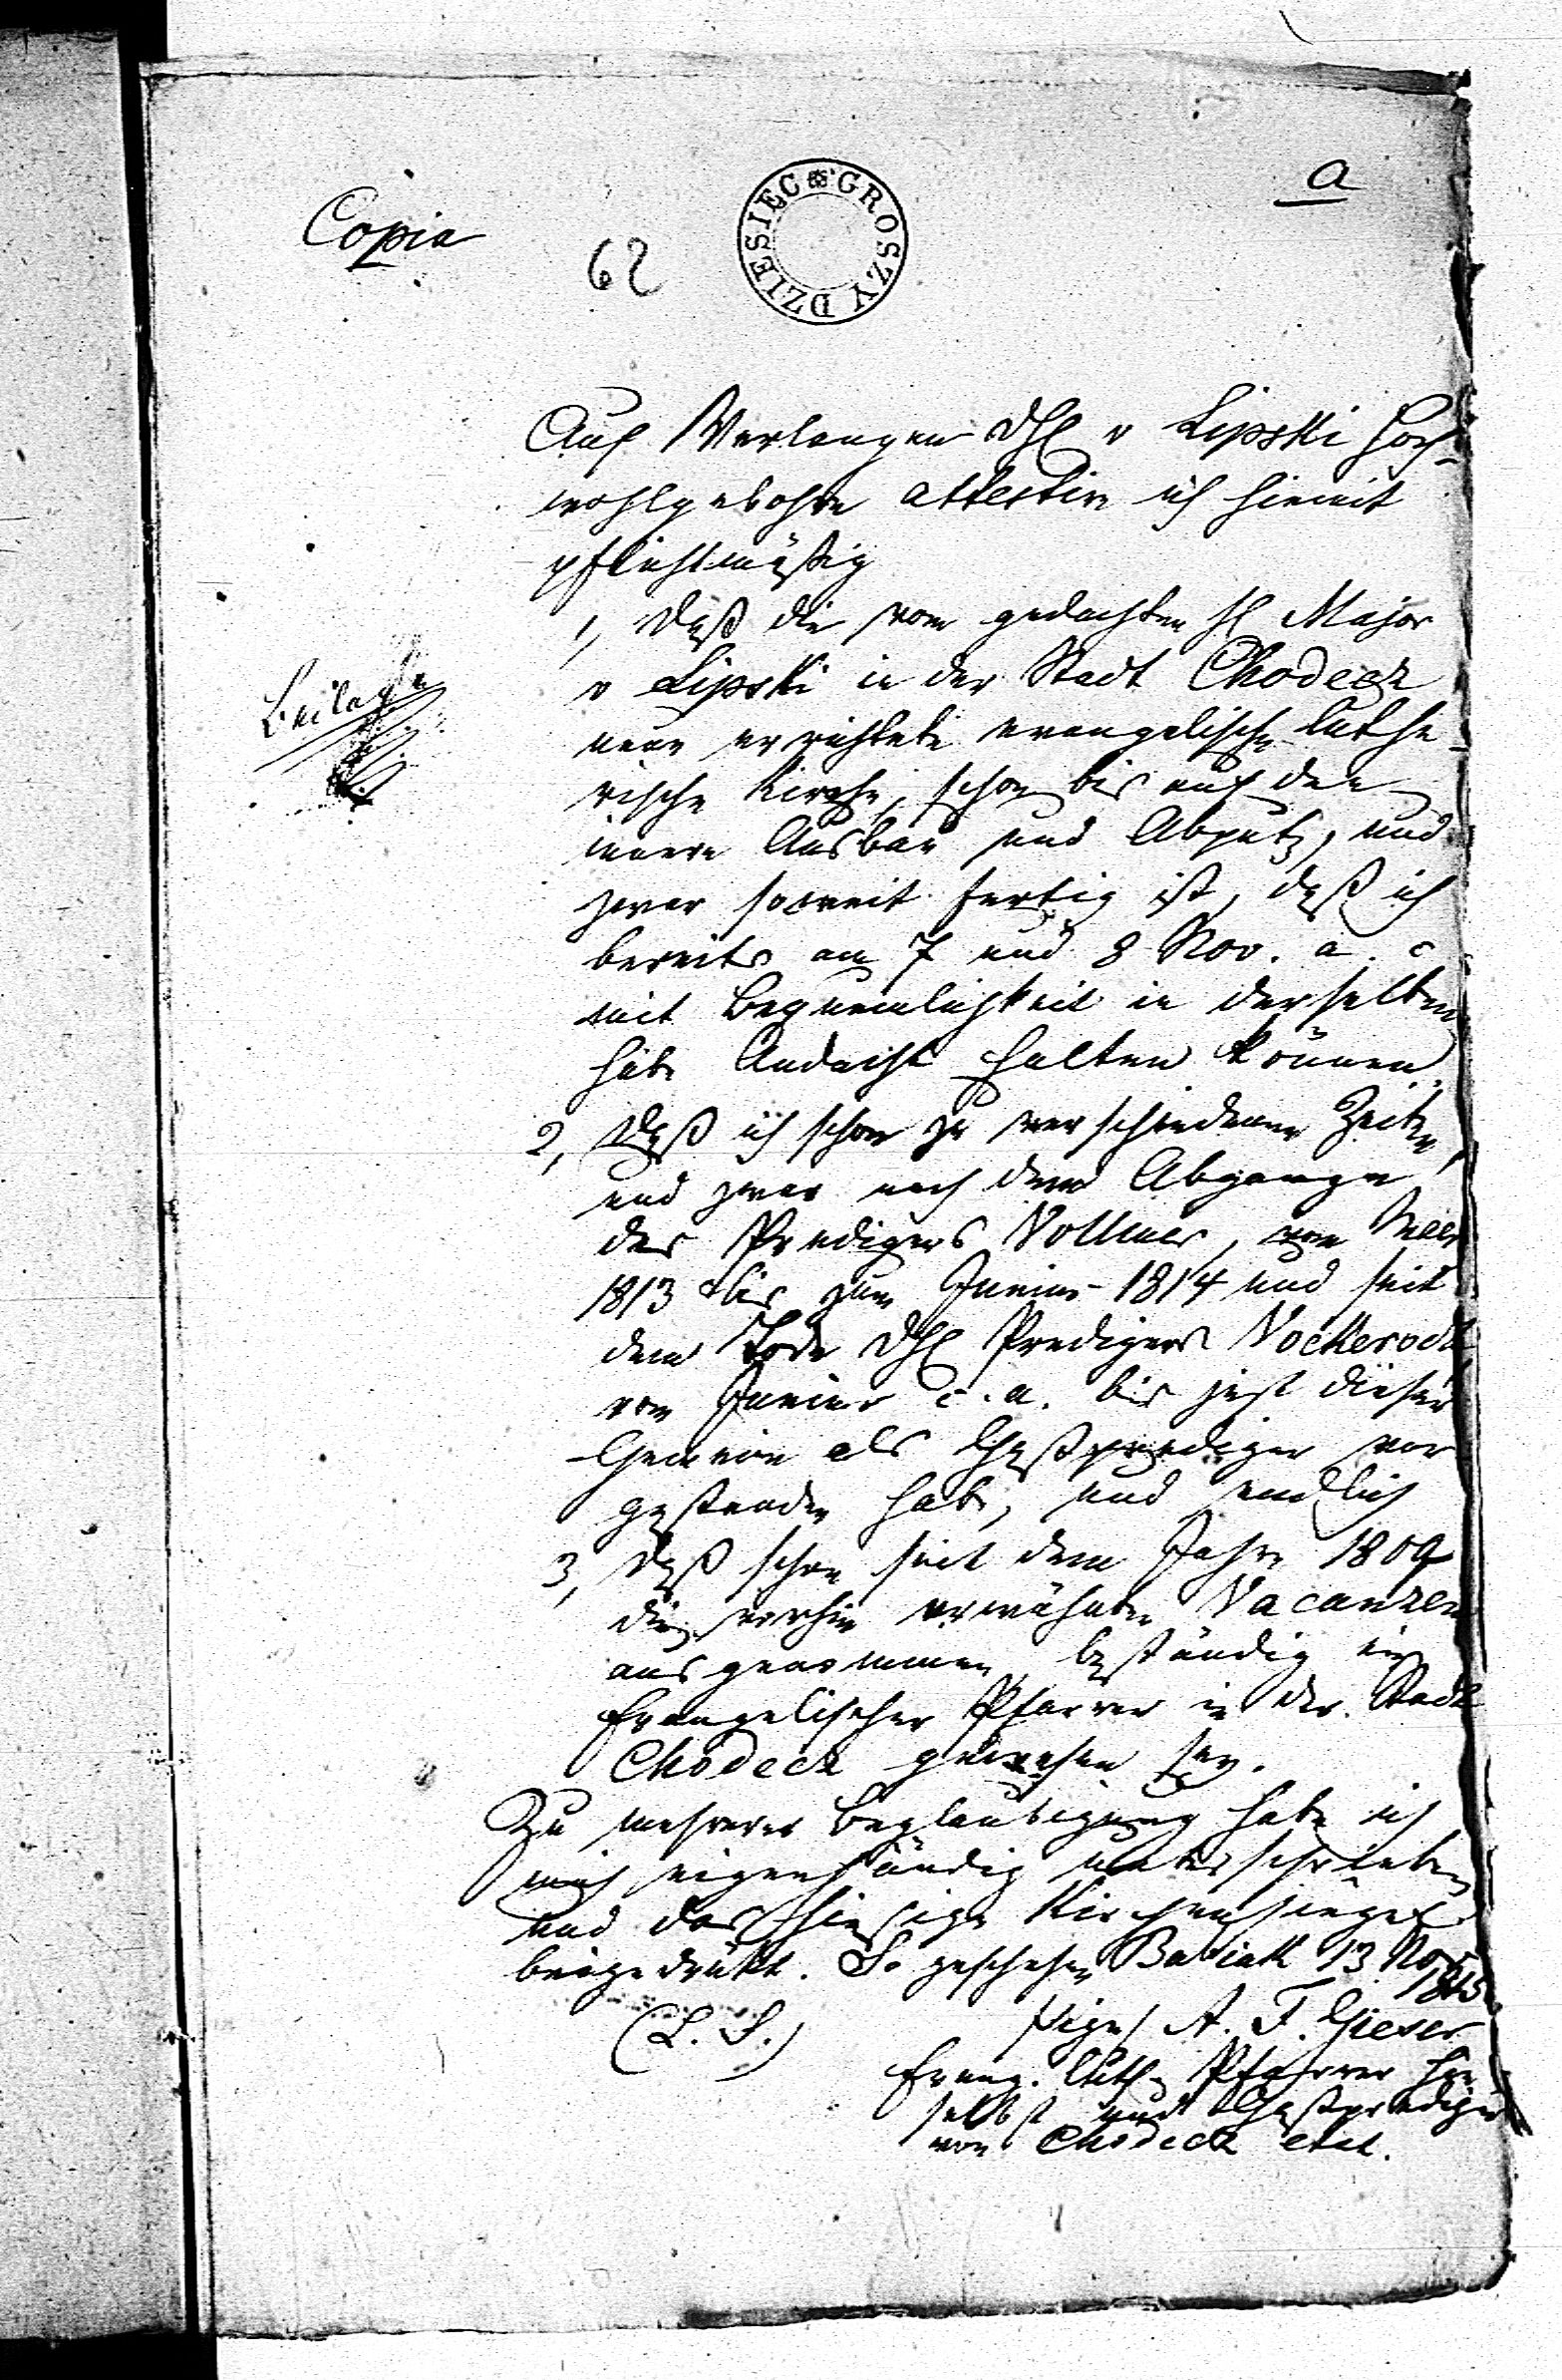 a
Copia
62
DZIESIĘC GROSZY
Auf Verlangen DH v Lipski Hoch-
wohlgebohrn attestire ich hiemit
pflichtmäßig
1, Daß die vom gedachten H Major
v Lipski in der Stadt Chodecz
neue errichtete evangelische luthe-
rische Kirche, schon bis auf den
innern Ausbau und Abputz, und
zwar soweit fertig ist, daß ich
bereits am 7 und 8 Nov. a. c
mit Bequemlichkeit in derselben
habe Andacht halten können
2, Daß ich schon zu verschiedenen Zeiten,
und zwar nach dem Abgange
des Predigers Vollmer, vom
1813 bis zum Junius 1814 und seit
dem Tode DH Predigers Vockerodt
vom Junius c. a. bis jezt dieser
Gemeine als Gastprediger vor
gestanden habe, und endlich
3, Daß schon seit dem Jahre 1809
die vorhin erwähnten Vacanzen
ausgenommen, beständig ein
Evangelischer Pfarrer in der Stadt
Chodecz gewesen sey.
Zu mehrerer Beglaubigung habe ich
mich eigenhändig unterschrieben
und das hiesige Kirchensiegel
beigedrükt. So geschehen Babiak 13 Nov
1815
(L. S.) sign/ A. F. Gieser
Evang. luth. Pfarrer hie
selbst und Gastprediger
von Chodecz
Beilage